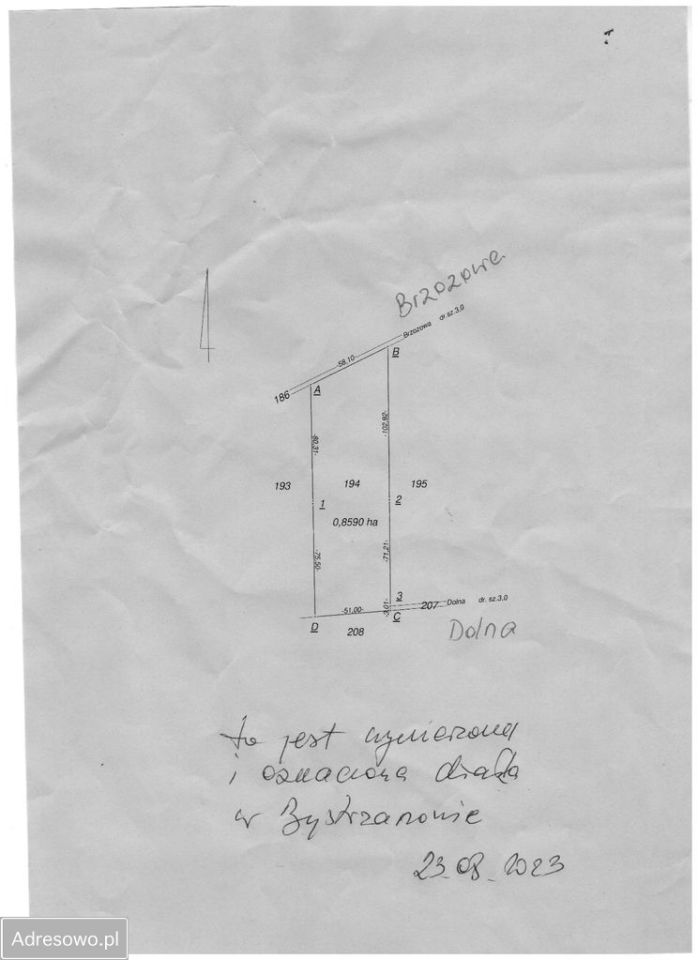 Brzozowa
Brzozowa dr.sz.3.0
-58,10-
B
186
A
-102,92-
-80,31-
193
194
195
1
2
0,8590 ha
-71,21-
-75,50-
3
207
Dolna dr. sz.3.0
-51,00-
-3,01-
C
D
208
Dolna
to jest wymierzona
i oznaczona działka
w Bystrzanowie
23.08.2023
Adresowo.pl